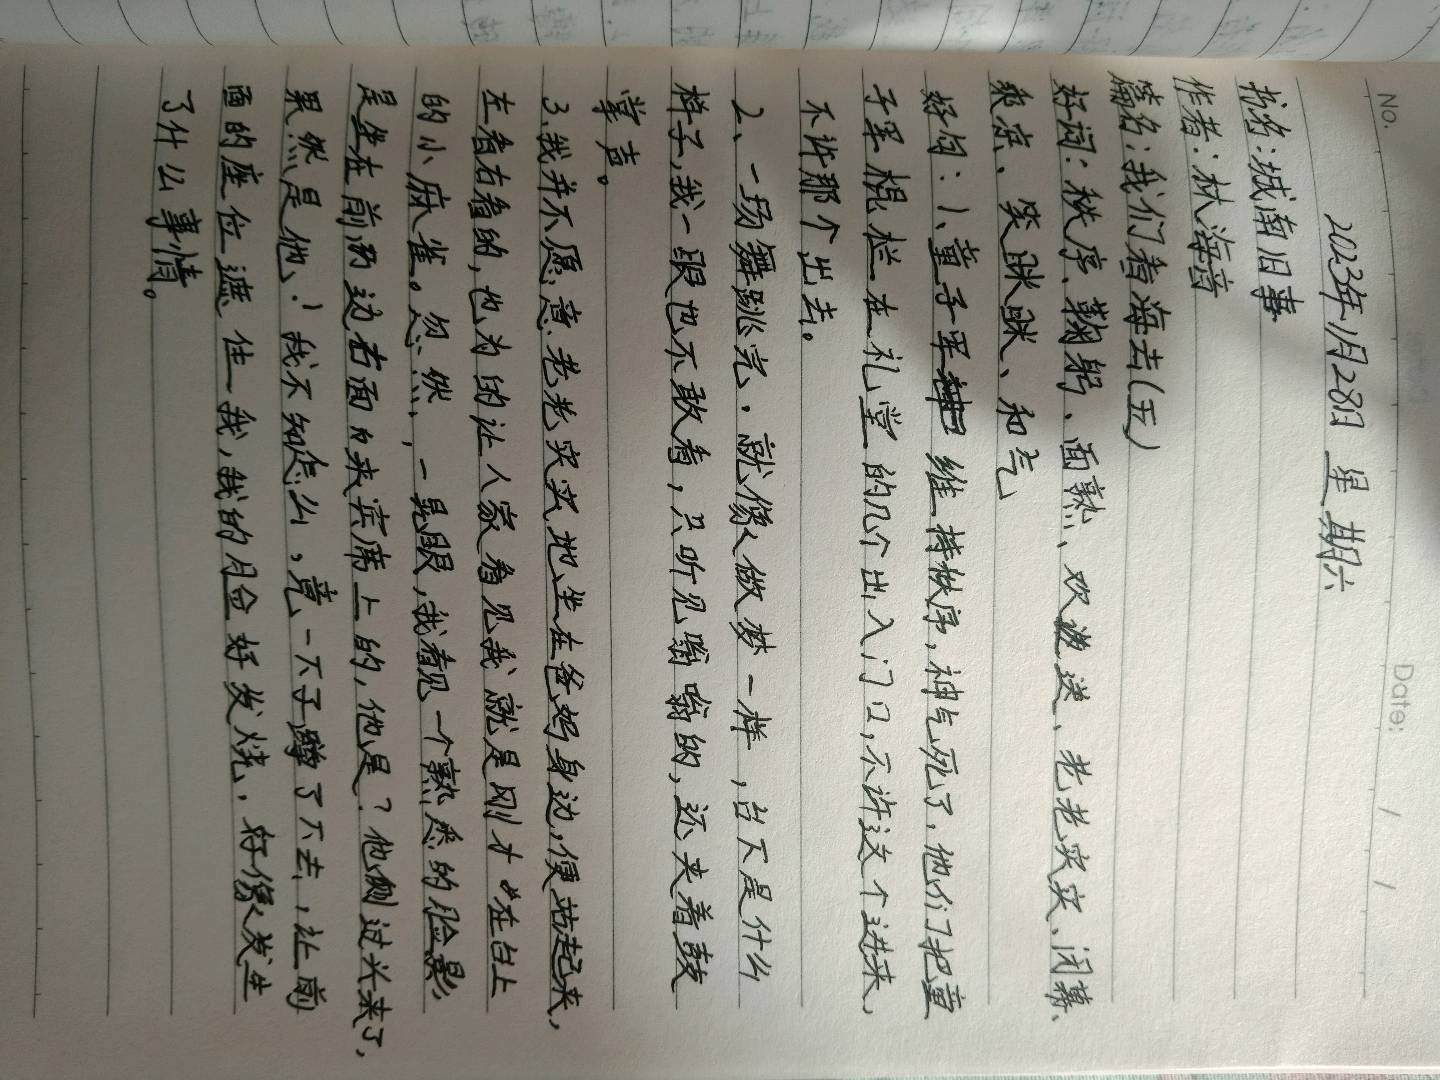 No.
Date: / /
2023年1月28日 星期六
书名：城南旧事
作者：林海音
篇名：我们看海去（五）
好词：秩序、鞠躬、面熟、欢送、老老实实、闭幕、
爽凉、笑眯眯、和气
好句：1、童子军 维持秩序，神气死了，他们把童
子军棍栏在礼堂的几个出入门口，不许这个进来，
不许那个出去。
2、一场舞跳完，就像做梦一样，台下是什么
样子，我一眼也不敢看，只听见嗡嗡的，还夹着鼓
掌声。
3、我并不愿意老老实实地坐在爸妈身边，便站起来，
左看右看的，也为的让人家看见我就是刚才在台上
的小麻雀。忽然，一晃眼，我看见一个熟悉的脸影，
是坐在前面边右面来宾席上的，他是？他侧过头来了，
果然是他！我不知怎么，竟一下子蹲了下去，让前
面的座位遮住我，我的脸好发烧，好像发生
了什么事情。